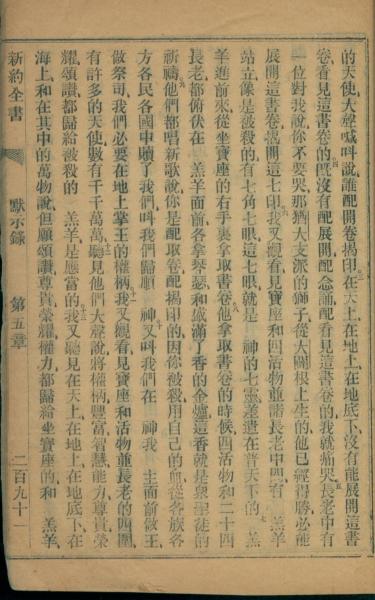 的天使、大聲喊叫說、誰配開卷揭印、在天上、在地上、在地底下、沒有能展開這書
卷、看見這書卷的、旣沒有配展開、配念誦、配看見這書卷的、我就痛哭、長老中有
一位對我說、你不要哭、那猶大支派的獅子、從大闢根上生的、他已經得勝、必能
展開這書卷、揭開這七印、我又觀看、見寶座和四活物並諸長老中間、有 羔羊
站立、像是被殺的、有七角七眼、這七眼就是 神的七靈、差遣在普天下的、 羔
羊進前來、從坐寶座的右手裏拿取書卷、他拿取書卷的時候、四活物和二十四
長老、都俯伏在 羔羊面前、各拿琴瑟、和盛滿了香的金爐、這香就是衆聖徒的
祈禱、他們都唱新歌、說、你是配取卷配揭印的、因你被殺、用自己的血、從各族各
方各民各國中贖了我們、叫我們歸順 神、又叫我們在 神我 主面前做王、
做祭司、我們必要在地上掌王的權柄、我又觀看、見寶座和活物並長老的四圍、
有許多的天使、數有千千萬萬、聽見他們大聲說、將權柄、豐富、智慧、能力、尊貴、榮
耀、頌讚、都歸給被殺的 羔羊、是應當的、我又聽見在天上、在地上、在地底下、在
海上、和在其中的萬物說、但願頌讚、尊貴、榮耀、權力、都歸給坐寶座的和 羔羊、
新約全書 默示錄 第五章 二百九十一